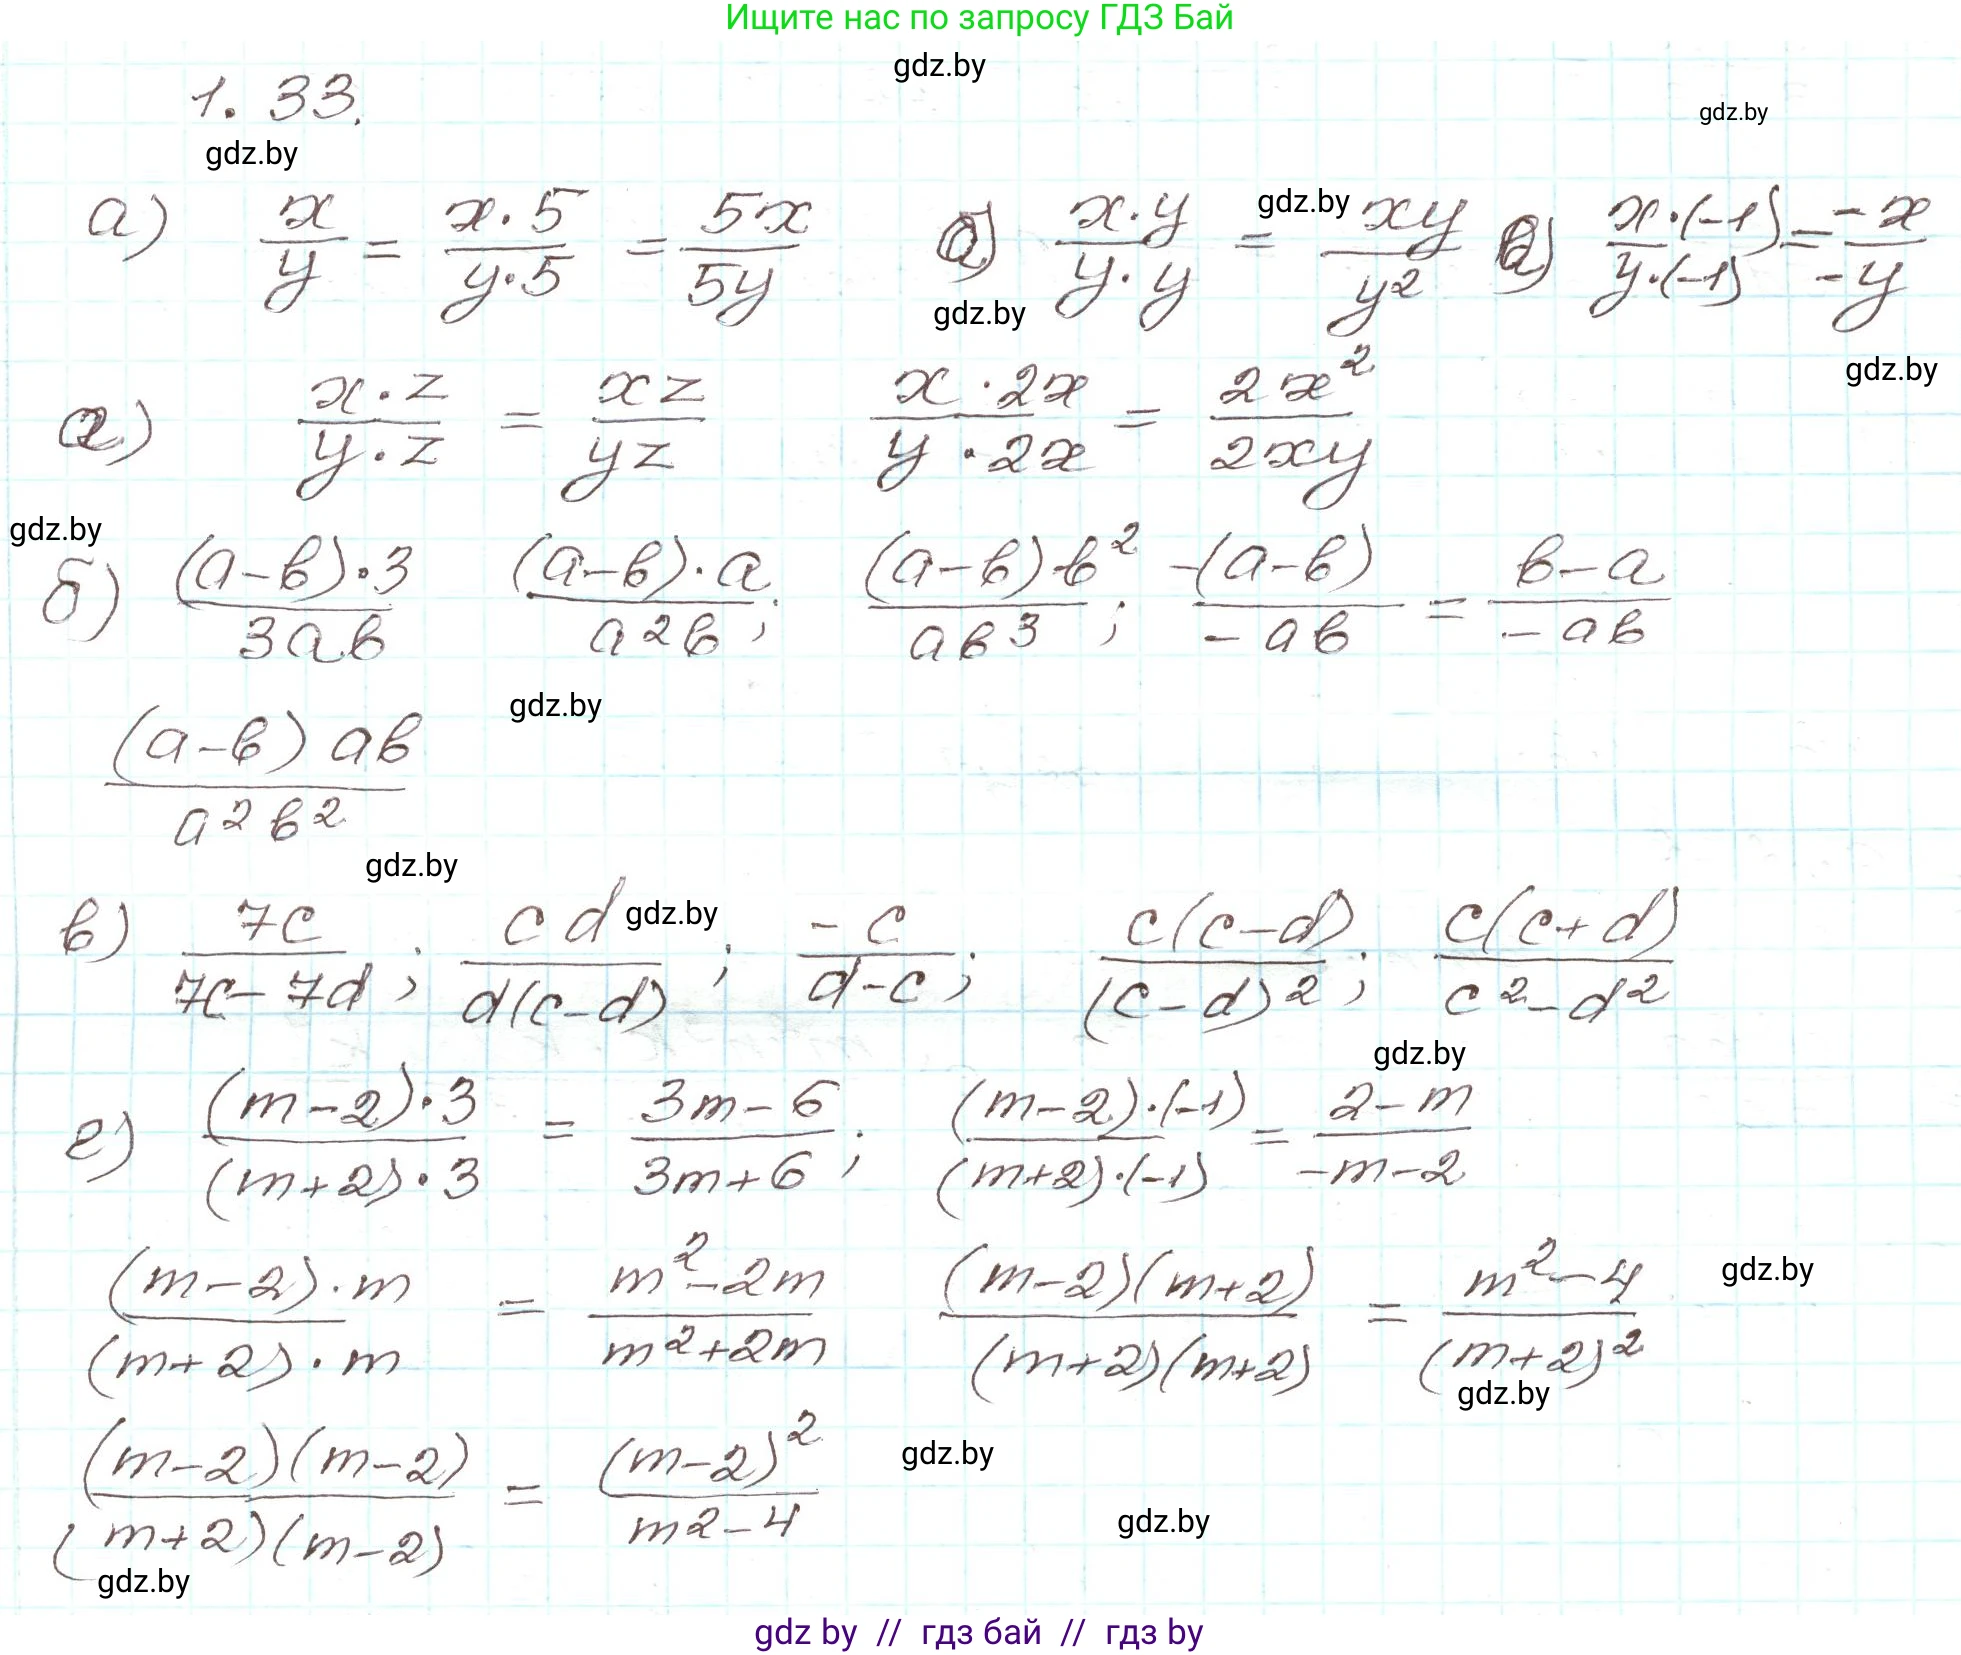 Ищите нас по запросу ГДЗ Бай
gdz.by
1. 33.
gdz.by
gdz.by
а) x/y = (x·5)/(y·5) = 5x/5y а) (x·y)/(y·y) = xy/y² а) (x·(-1))/(y·(-1)) = -x/-y
gdz.by
gdz.by
gdz.by
а) (x·z)/(y·z) = xz/yz (x·2x)/(y·2x) = 2x²/2xy
gdz.by
б) ((a-b)·3)/3ab ((a-b)·a)/a²b; ((a-b)·b²)/ab³; -(a-b)/-ab = (b-a)/-ab
gdz.by
((a-b)ab)/a²b²
gdz.by
в) 7c/(7c-7d); cd/(d(c-d)); -c/(d-c); c(c-d)/(c-d)²; c(c+d)/(c²-d²)
gdz.by
gdz.by
г) ((m-2)·3)/((m+2)·3) = (3m-6)/(3m+6); ((m-2)·(-1))/((m+2)·(-1)) = (2-m)/(-m-2)
((m-2)·m)/((m+2)·m) = (m²-2m)/(m²+2m) ((m-2)(m+2))/((m+2)(m+2)) = (m²-4)/(m+2)²
gdz.by
gdz.by
((m-2)(m-2))/((m+2)(m-2)) = (m-2)²/(m²-4)
gdz.by
gdz.by
gdz.by
gdz by // гдз бай // гдз by